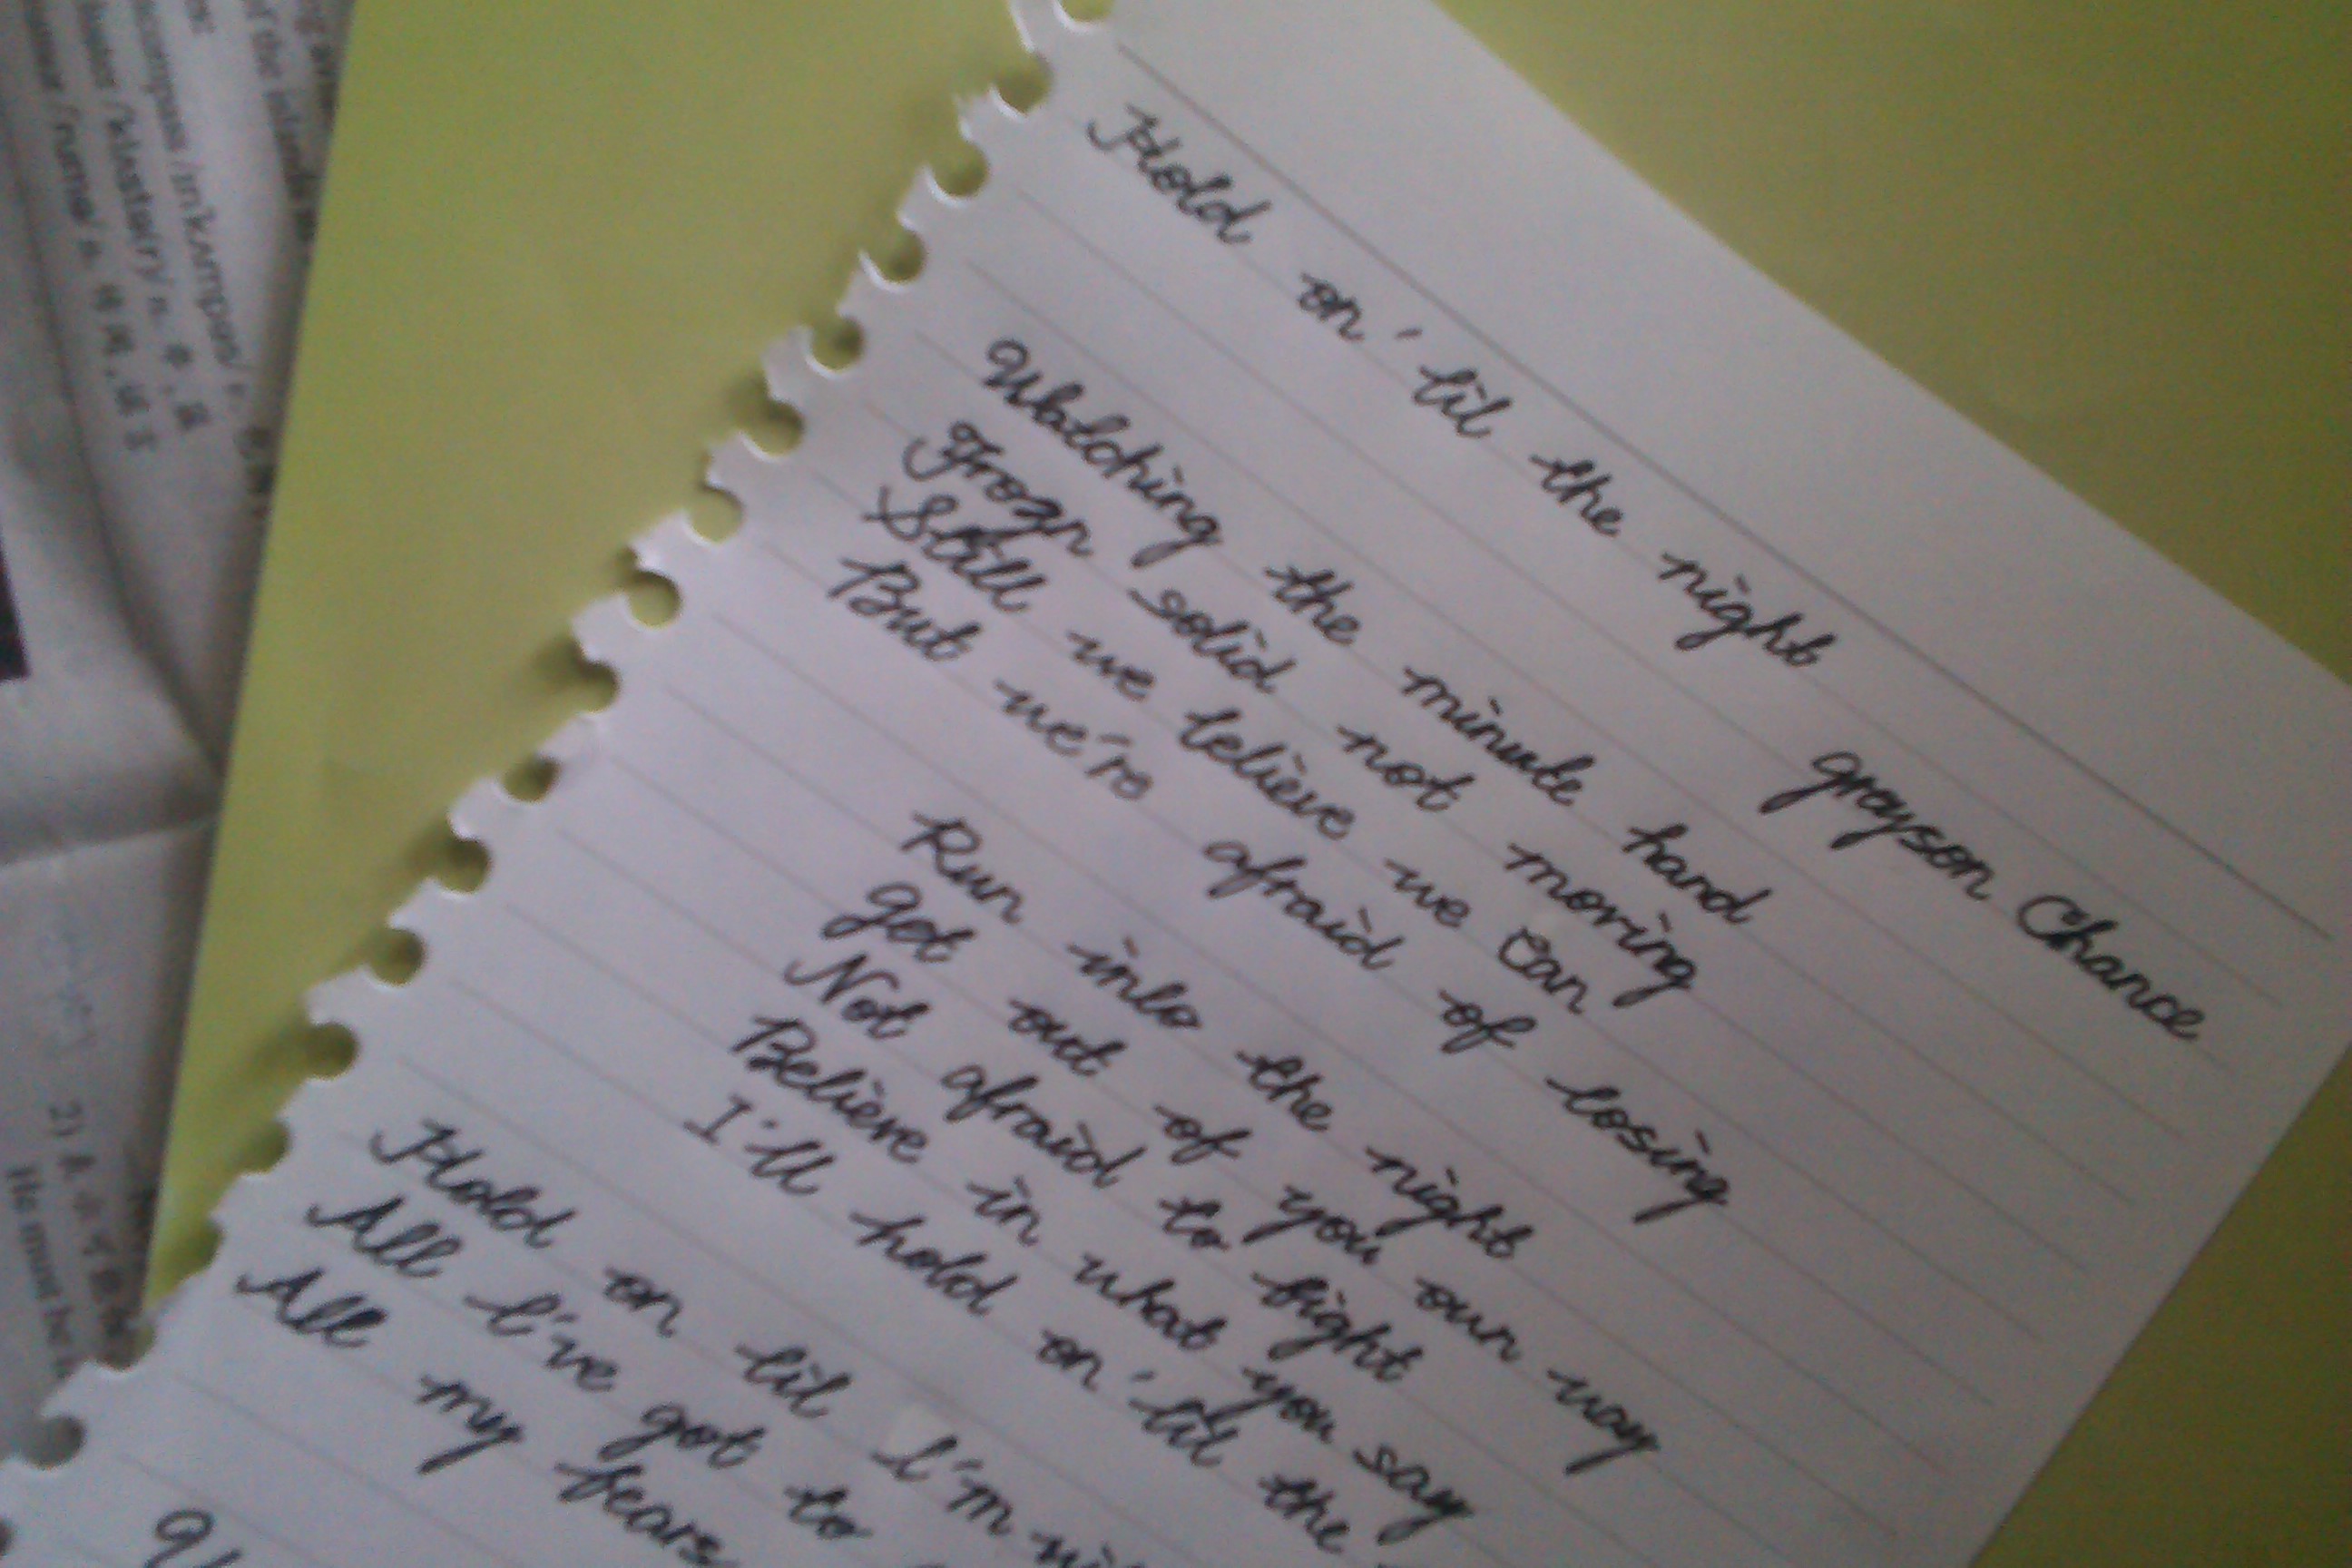 Hold on 'til the night
Grayson Chance
Watching the minute hand
Frozn solid not moving
Still we believe we can
But we're afraid of losing
Run into the night
Get out of you our way
Not afraid to fight
Believe in what you say
I'll hold on 'til the
Hold on til I'm
All I've got to
All my fears
2)
He must be